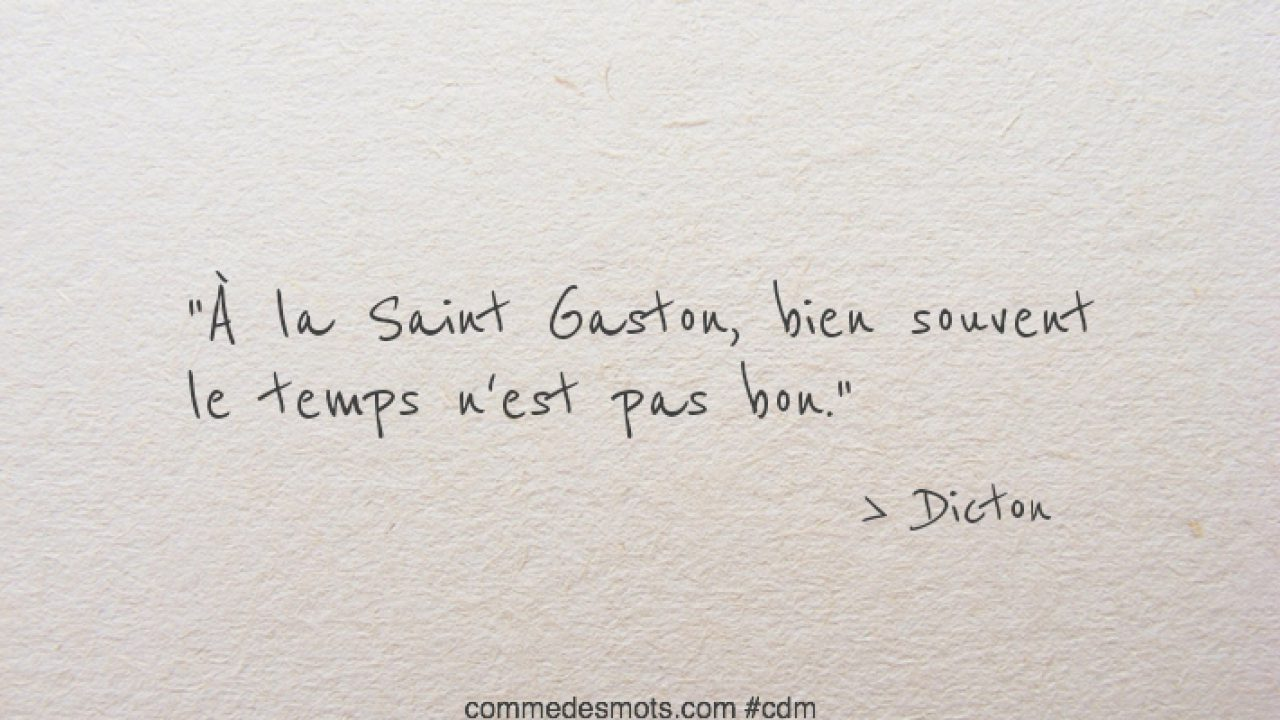 "À la Saint Gaston, bien souvent
le temps n'est pas bon."
> Dicton
commedesmots.com #cdm